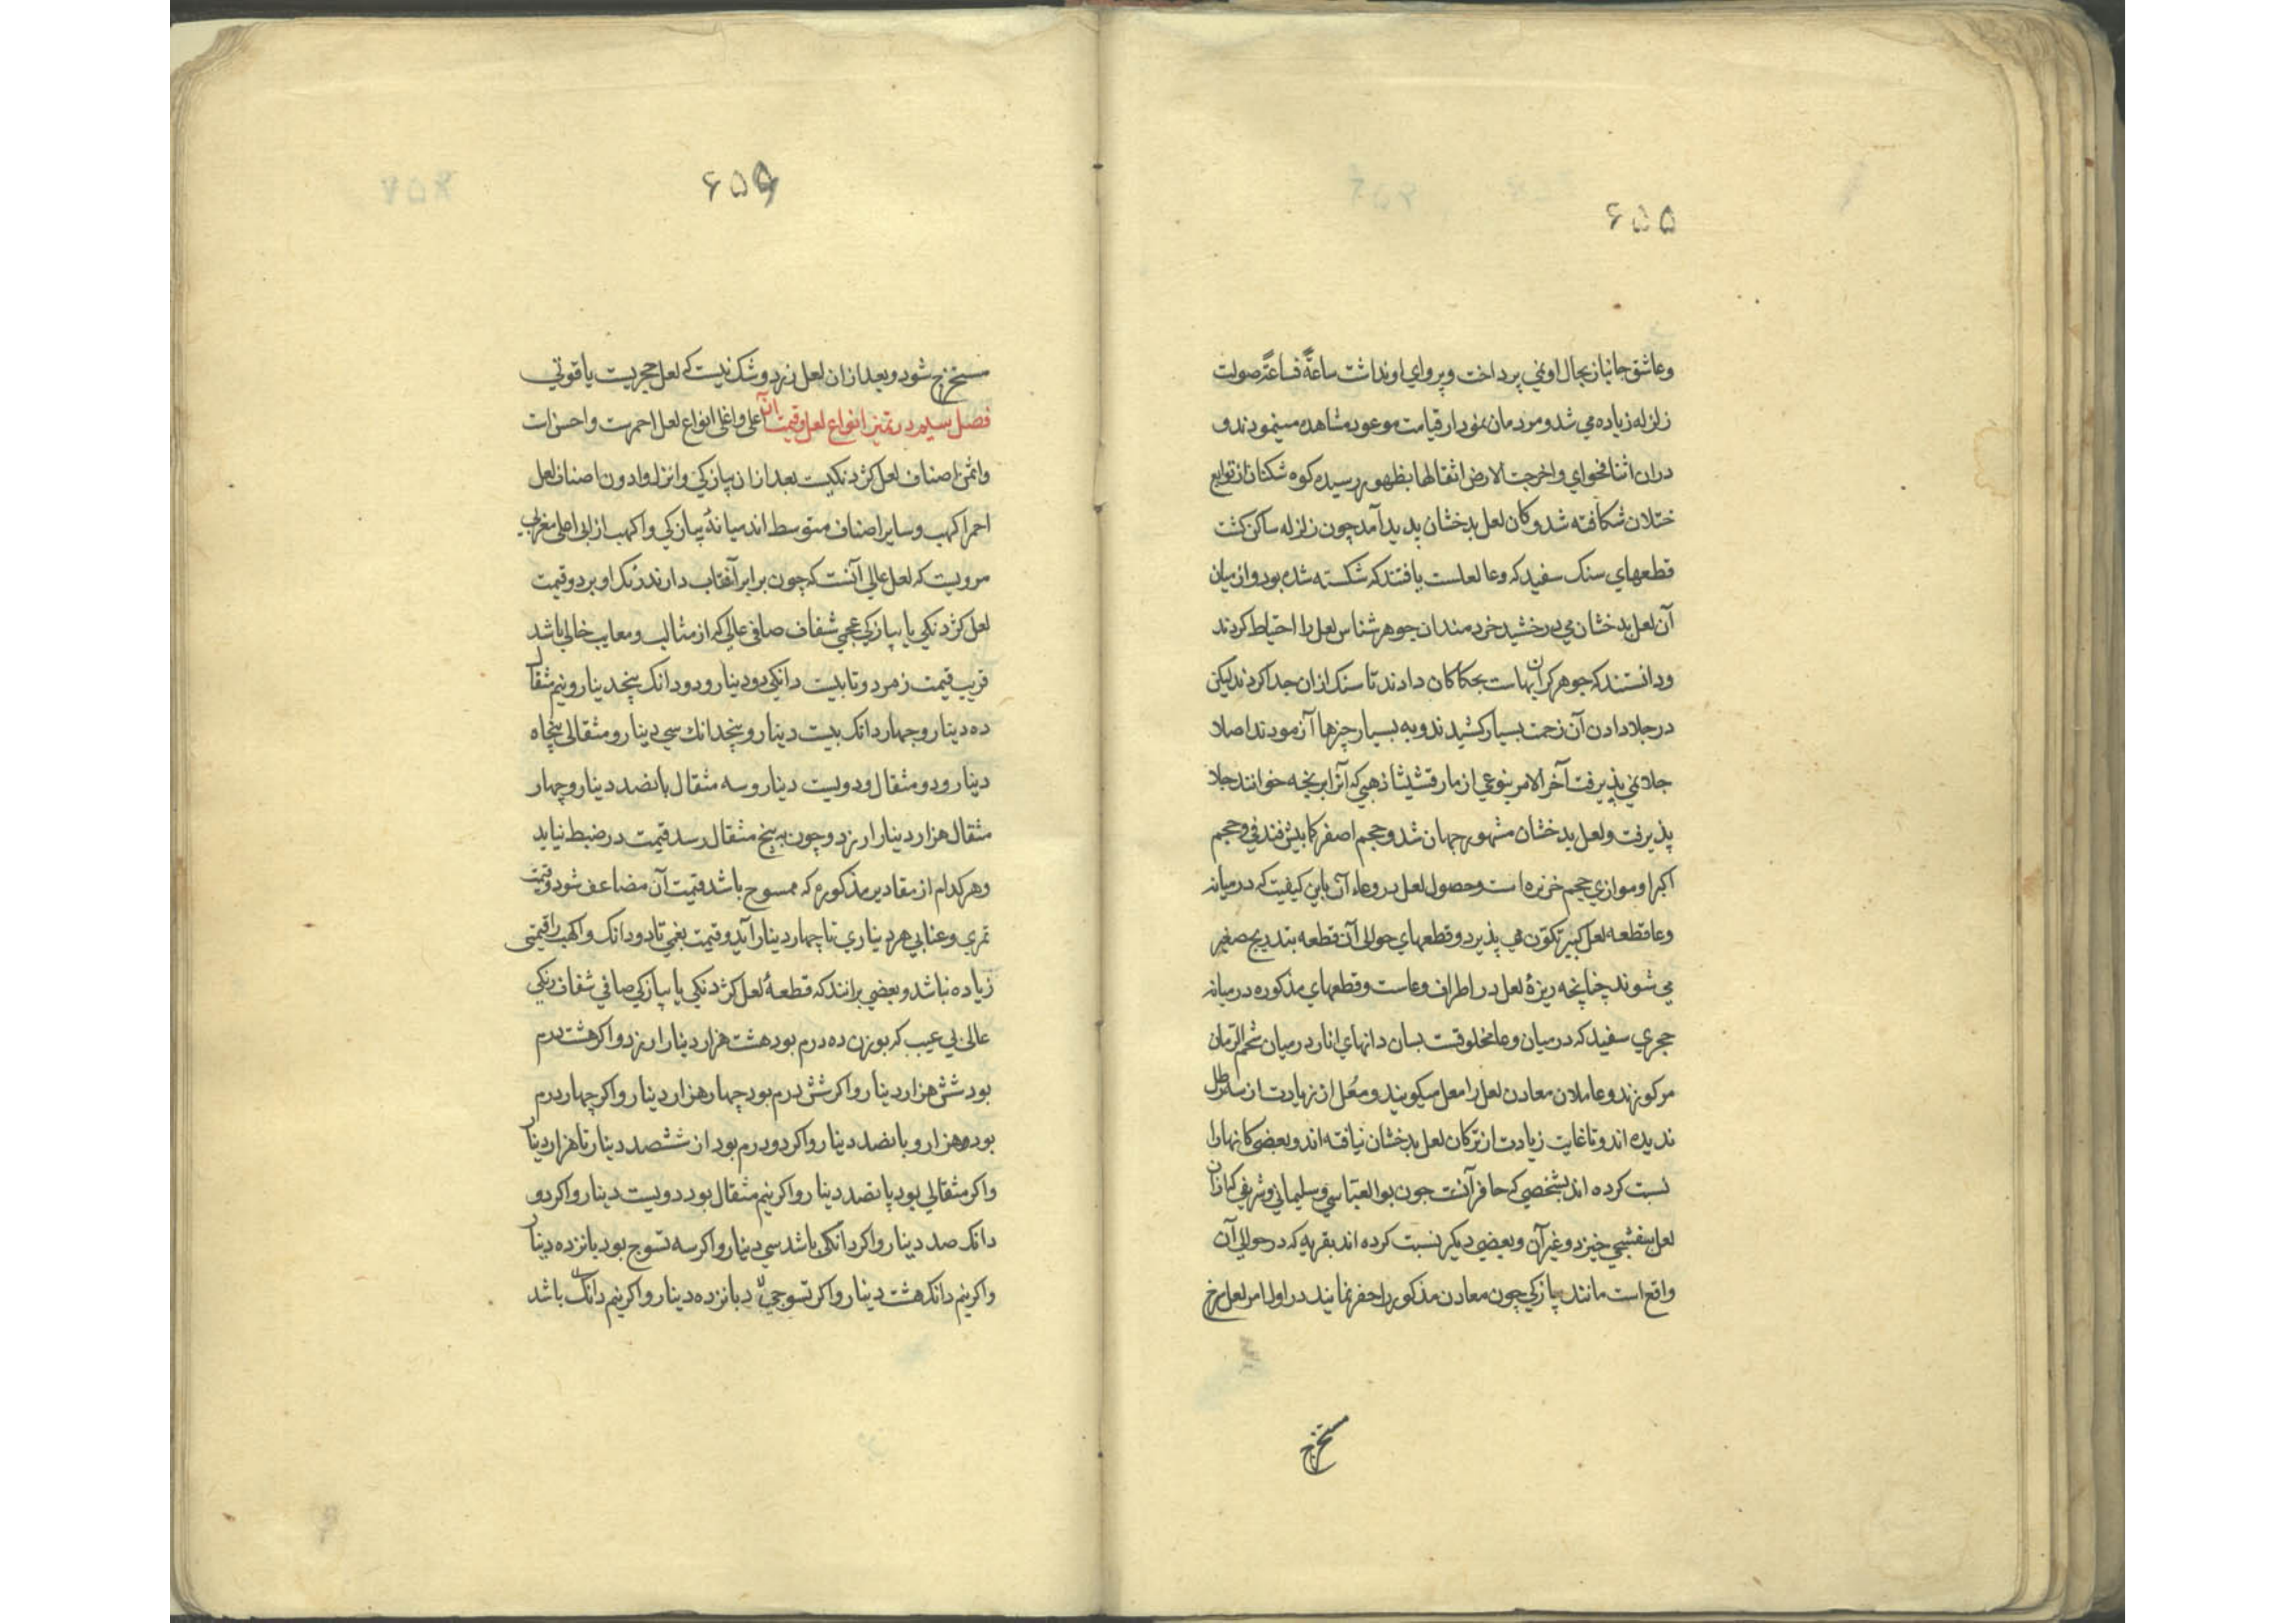 ۶۵۵
وعاشق جانباز بجال او نمي پرداخت و پرواي او نداشت ساعةً فساعةً صولت
زلزله زياده مي شد و مردمان نمودار قيامت موعود مشاهده مينمودند و
دران اثنا فحواي واخرجت الارض اثقالها بظهور رسيده كوه شكنان از توابع
ختلان شكافته شد و كان لعل بدخشان پديد آمد چون زلزله ساكن كشت
قطعهاي سنك سفيد كه وعا لعلست يافتند كه شكسته شده بود و از ميان
آن لعل بدخشان مي درخشيد خردمندان جوهر شناس لعل را احتياط كردند
و دانستند كه جوهر كران بهاست بحكاكان دادند تا سنك ازان جدا كردند ليكن
در جلا دادن آن زحمت بسيار كشيدند و به بسيار چيزها آزمودند اصلا
جلا نمي پذيرفت آخر الامر بنوعي از مارقشيثا ذهبي كه آنرا برنجه خوانند جلا
پذيرفت و لعل بدخشان مشهور جهان شد و حجم اصغر كا بيش فندقي و حجم
اكبر او موازي حجم خربزه است و حصول لعل در وعاء آن باين كيفيت كه در ميانه
وعا قطعه لعل كبير تكوّن مي پذيرد و قطعهاي حوالي آن قطعه بتدريج صغير
مي شوند چنانچه ريزهٔ لعل در اطراف وعاست و قطعهاي مذكوره در ميانه
حجري سفيد كه در ميان وعا مخلوقست بسان دانهاي انار در ميان شحم الرمان
مركوزند و عاملان معادن لعل را معل ميكويند و مُعل از زيادت از سه رطل
نديده اند و تا غايت زيادت از تركان لعل بدخشان نيافته اند و بعضي كانها را
نسبت كرده اند بشخصي كه حافر آنست چون بوالعباسي و سليماني و شريفي كه ازان
لعل بنفشجي خيزد و غير آن و بعضي ديكر نسبت كرده اند بقريه كه در حوالي آن
واقع است مانند پيازكي چون معادن مذكور را حفر نمايند در اول امر لعل سرخ
مستخرج
۶۵۶
مستخرج شود و بعد ازان لعل زرد و شك نيست كه لعل حجريست ياقوتي
فصل سيم در تميز انواع لعل و قيمت آن اعلي و اغلي انواع لعل احمرست و احسن است
و اثمن اصناف لعل كژدنكيست بعد ازان پيازكي و انزل و ادون اصناف لعل
احمر اكهب و ساير اصناف متوسط اند ميانهٔ پيازكي و اكهب از ابي اعلي مغربي
مرويست كه لعل عالي آنست كه چون برابر آفتاب دارند رنك او برد و قيمت
لعل كژدنكي يا پيازكي عجمي شفاف صافي عالي كه از مثالب و معايب خالي باشد
قريب قيمت زمرد و تا بليت دانكي دو دينار و دو دانك پنج دينار و نيم مثقال
ده دينار و چهار دانك بيست دينار و پنج دانك سي دينار و مثقالي پنجاه
دينار و دو مثقال و دويست دينار و سه مثقال پانصد دينار و چهار
مثقال هزار دينار ارزد و چون به پنج مثقال رسد قيمت در ضبط نيايد
و هر كدام از مقادير مذكوره كه ممسوح باشد قيمت آن مضاعف شود و قيمت
تمري و عنابي هر ديناري تا چهار دينار آيد و قيمت بغمي تا دو دانك و اكهب را قيمتي
زياده نباشد و بعضي برانند كه قطعهٔ لعل كژدنكي يا پيازكي صافي شفاف رنكي
عالي بي عيب كه بوزن ده درم بود هشت هزار دينار ارزد و اكر هشت درم
بود شش هزار دينار و اكر شش درم بود چهار هزار دينار و اكر چهار درم
بود دو هزار و پانصد دينار و اكر دو درم بود از ششصد دينار تا هزار دينار
و اكر مثقالي بود پانصد دينار و اكر نيم مثقال بود دويست دينار و اكر دو
دانك صد دينار و اكر دانكي باشد سي دينار و اكر سه تسوج بود پانزده دينار
و اكر نيم دانك هشت دينار و اكر تسوجي پانزده دينار و اكر نيم دانك باشد